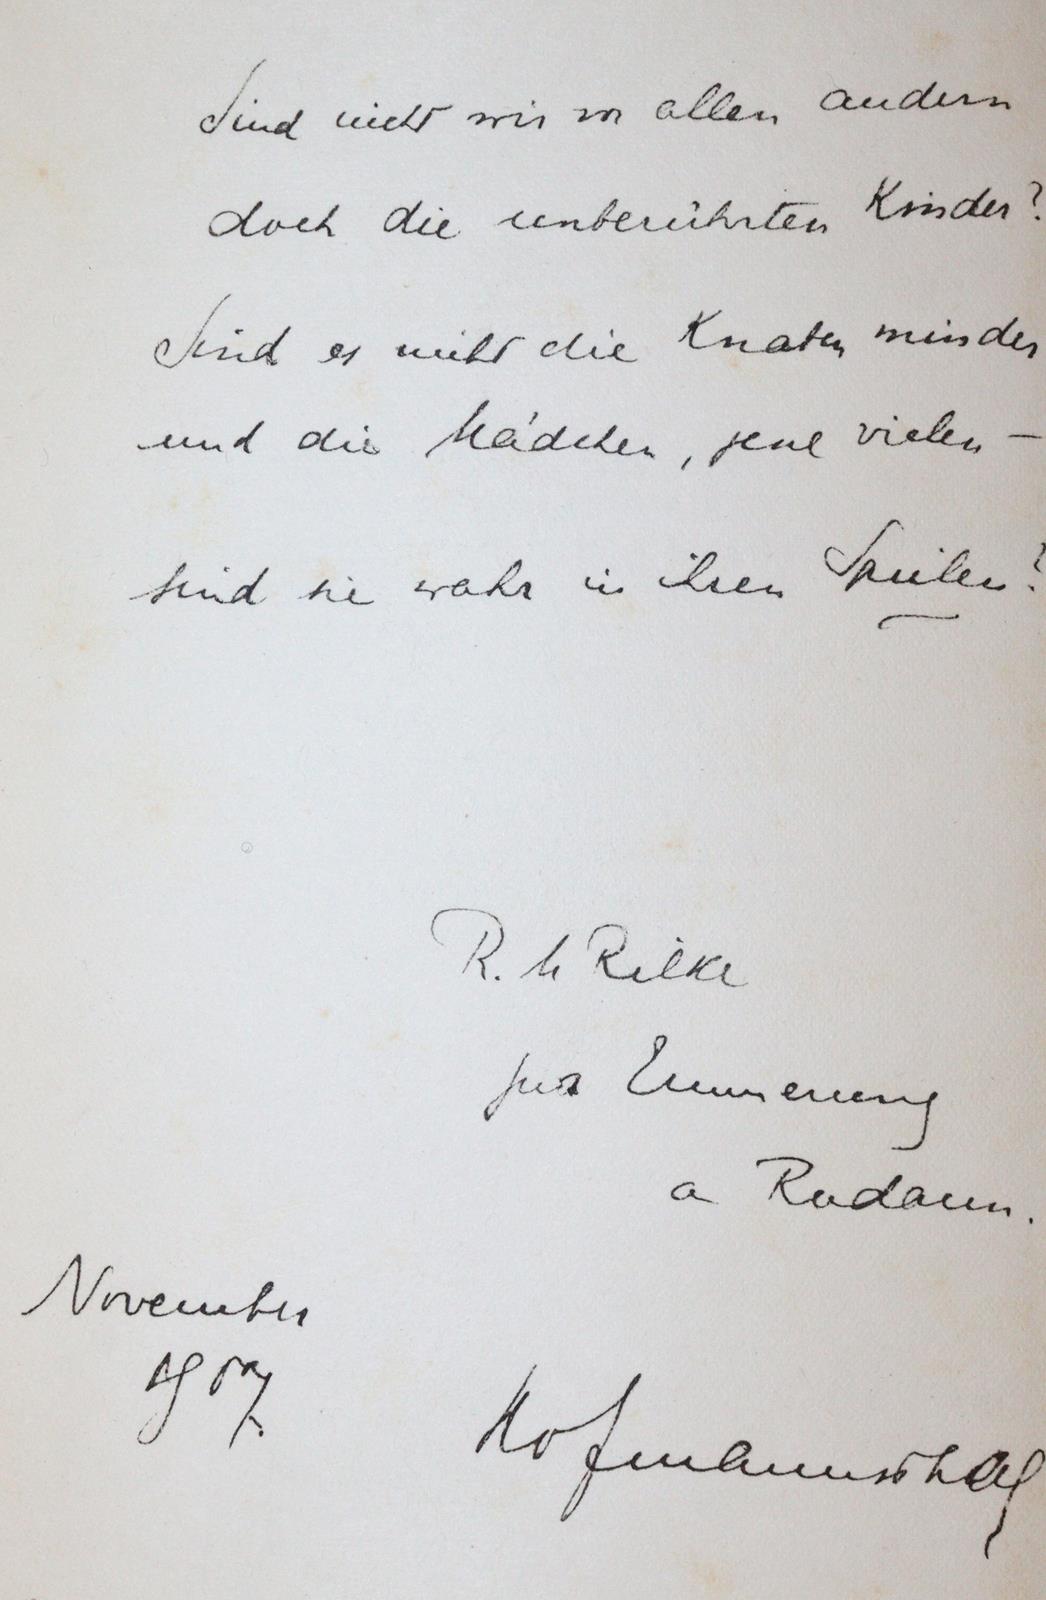 Sind nicht wir vor allen andern
doch die unberührten Kinder?
Sind es nicht die Knaben minder
und die Mädchen, jene vielen –
sind sie wahr in ihren Spielen?
R. M Rilke
zur Erinnerung
a Rodaun.
November
1907.
Hofmannsthal